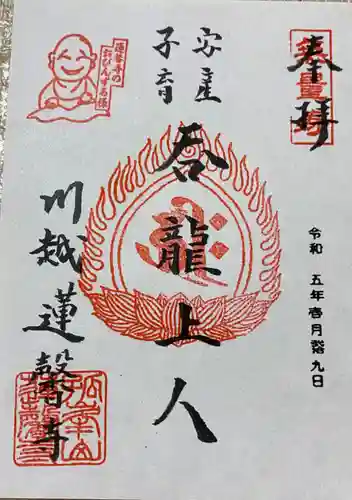 奉拝
令和 五年壱月拾九日
安産
子育
呑龍上人
蓮馨寺の
おびんずる様
川越 蓮馨寺